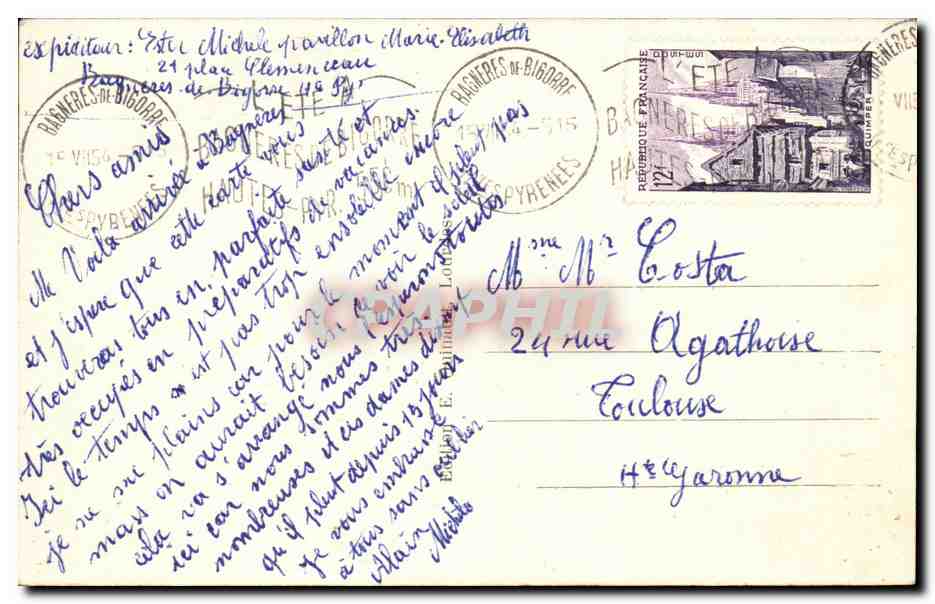 expéditeur: Ester Michele pavillon Marie-Elisabeth
21 place Clemenceau
Bagnères-de-Bigorre Hte Py.
Chers amis
Me Voila arrivée a Bagnères
et j'espere que cette carte vous
trouveras tous en parfaite santé et
très occupés en préparatifs de vacances.
Ici le temps est pas trop ensoleillé encore
je ne me plains car pour le moment il pleut pas
mais on aurait besoin d'avoir le soleil
cela va s'arrangé nous l'esperont toutes
ici car nous sommes très
nombreuses et ces dames disent
qu'il pleut depuis 15 jours
Je vous embrasse
à tous sans oublier
Alain
Michele
Mme Mr Costa
24 rue Agathoise
Toulouse
Hte Garonne
BAGNERES-DE-BIGORRE
15 VII 54
HTES PYRENEES
L'ETE A
BAGNERES DE BIGORRE
HAUTES-PYR.
BAGNERES-DE-BIGORRE
HTES PYRENEES
REPUBLIQUE FRANÇAISE
POSTES
12F
QUIMPER
CPAPHIL